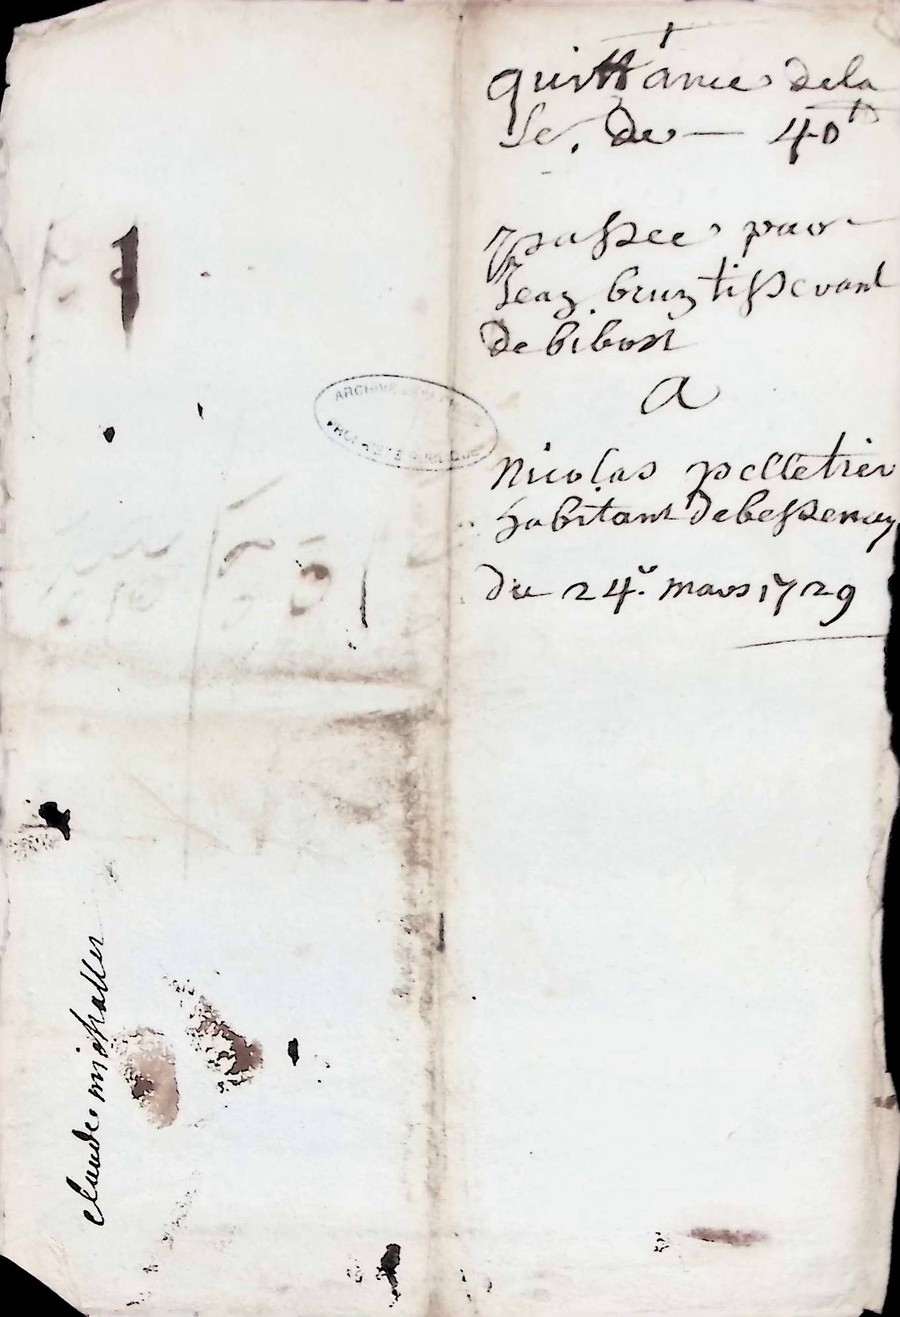 quittance dela
Se. de — 40tt
passee par
Jean brun tisserant
De bibost
A
Nicolas pelletier
habitant De bessenay
Du 24e. mars 1729
ARCHIVES
PROPRIÉTÉ PUBLIQUE
claude michallet